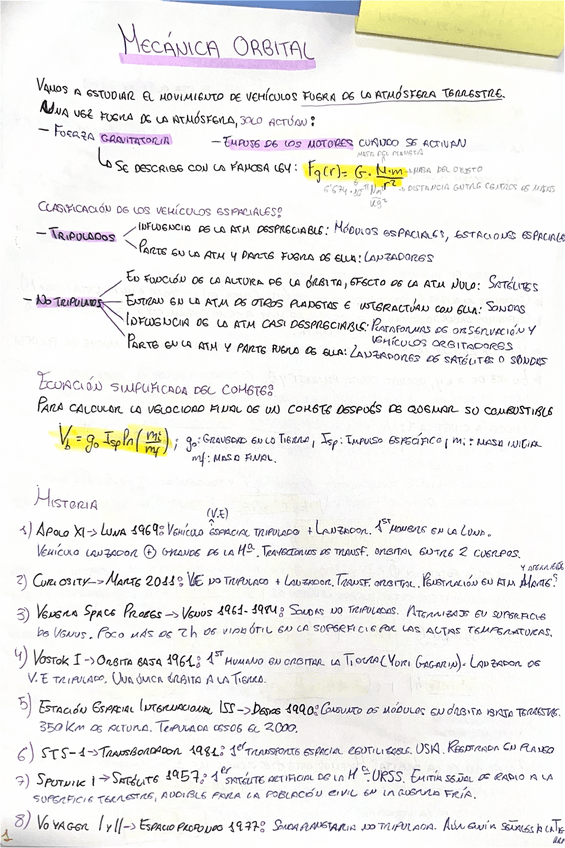 MECÁNICA ORBITAL
VAMOS A ESTUDIAR EL MOVIMIENTO DE VEHÍCULOS FUERA DE LA ATMÓSFERA TERRESTRE.
UNA VEZ FUERA DE LA ATMÓSFERA, SOLO ACTÚAN:
- FUERZA GRAVITATORIA - EMPUJE DE LOS MOTORES CUANDO SE ACTIVAN
MASA DEL PLANETA
↳ SE DESCRIBE CON LA FAMOSA LEY: Fg(r) = G · M·m / r² → MASA DEL OBJETO
→ DISTANCIA ENTRE CENTROS DE MASAS
CLASIFICACIÓN DE LOS VEHÍCULOS ESPACIALES:
- TRIPULADOS
INFLUENCIA DE LA ATM DESPRECIABLE: MÓDULOS ESPACIALES, ESTACIONES ESPACIALES
PARTE EN LA ATM Y PARTE FUERA DE ELLA: LANZADORES
- NO TRIPULADOS
EN FUNCIÓN DE LA ALTURA DE LA ÓRBITA, EFECTO DE LA ATM NULO: SATÉLITES
ENTRAN EN LA ATM DE OTROS PLANETAS E INTERACTÚAN CON ELLA: SONDAS
INFLUENCIA DE LA ATM CASI DESPRECIABLE: PLATAFORMAS DE OBSERVACIÓN Y
VEHÍCULOS ORBITADORES
PARTE EN LA ATM Y PARTE FUERA DE ELLA: LANZADORES DE SATÉLITES O SONDAS
ECUACIÓN SIMPLIFICADA DEL COHETE:
PARA CALCULAR LA VELOCIDAD FINAL DE UN COHETE DESPUÉS DE QUEMAR SU COMBUSTIBLE
Vb = g₀ Isp ln(mi/mf) ; g₀: GRAVEDAD EN LA TIERRA, Isp: IMPULSO ESPECÍFICO, mi: MASA INICIAL
mf: MASA FINAL.
HISTORIA
(V.E)
1) APOLO XI → LUNA 1969: VEHÍCULO ESPACIAL TRIPULADO + LANZADOR. 1ST HOMBRE EN LA LUNA.
VEHÍCULO LANZADOR ⊕ GRANDE DE LA Hª. TRAYECTORIAS DE TRANSF. ORBITAL ENTRE 2 CUERPOS.
Y ATERRIZAJE
2) CURIOSITY → MARTE 2011: VE NO TRIPULADO + LANZADOR. TRANSF. ORBITAL. PENETRACIÓN EN ATM MARTE
3) VENERA SPACE PROBES → VENUS 1961-1984: SONDAS NO TRIPULADAS. ATERRIZAJE EN SUPERFICIE
DE VENUS. POCO MÁS DE 2h DE VIDA ÚTIL EN LA SUPERFICIE POR LAS ALTAS TEMPERATURAS.
4) VOSTOK I → ORBITA BAJA 1961: 1ST HUMANO EN ORBITAR LA TIERRA (YURI GAGARIN). LANZADOR DE
V.E TRIPULADO. UNA ÚNICA ÓRBITA A LA TIERRA.
5) ESTACIÓN ESPACIAL INTERNACIONAL ISS → DESDE 1990: CONJUNTO DE MÓDULOS EN ÓRBITA BAJA TERRESTRE.
350 KM DE ALTURA. TRIPULADA DESDE EL 2000.
6) STS-1 → TRANSBORDADOR 1981: 1er TRANSPORTE ESPACIAL REUTILIZABLE. USA. REENTRADA EN PLANEO
7) SPUTNIK I → SATÉLITE 1957: 1er SATÉLITE ARTIFICIAL DE LA Hª - URSS. EMITÍA SEÑAL DE RADIO A LA
SUPERFICIE TERRESTRE, AUDIBLE PARA LA POBLACIÓN CIVIL EN LA GUERRA FRÍA.
8) VOYAGER I y II → ESPACIO PROFUNDO 1977: SONDA PLANETARIA NO TRIPULADA. AÚN ENVÍA SEÑALES A LA
1